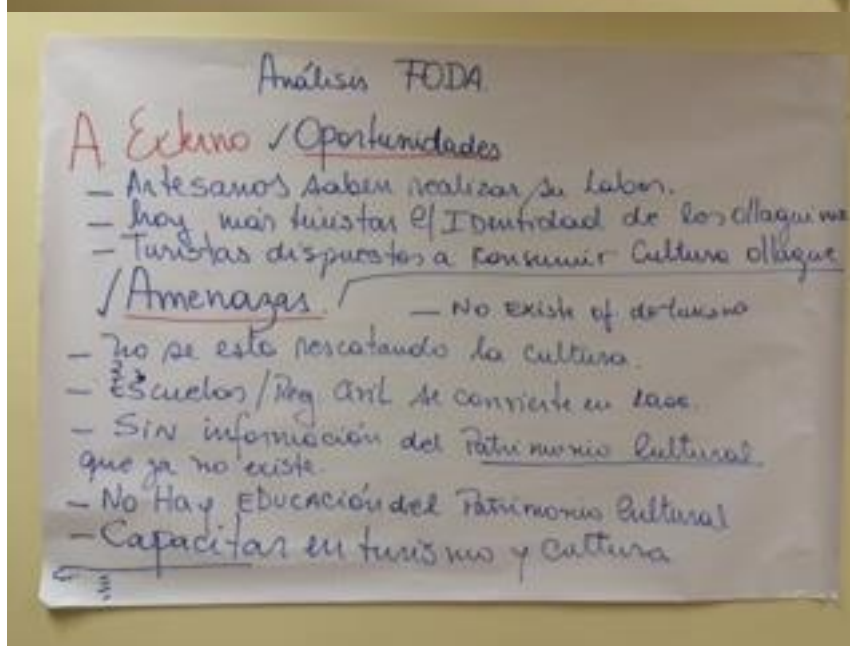 Análisis FODA
A Externo ✓ Oportunidades
— Artesanos saben realizar su labor.
— hay más turistas e/ Identidad de los ollaguinos
— Turistas dispuestos a consumir Cultura ollague
✓ Amenazas.
— No existe of de turismo
— no se esta rescatando la cultura.
— Escuelas / Reg Civil se convierte en
— SIN información del Patrimonio Cultural
que ya no existe.
— No Hay EDUCACIÓN del Patrimonio Cultural
— Capacitar en turismo y cultura